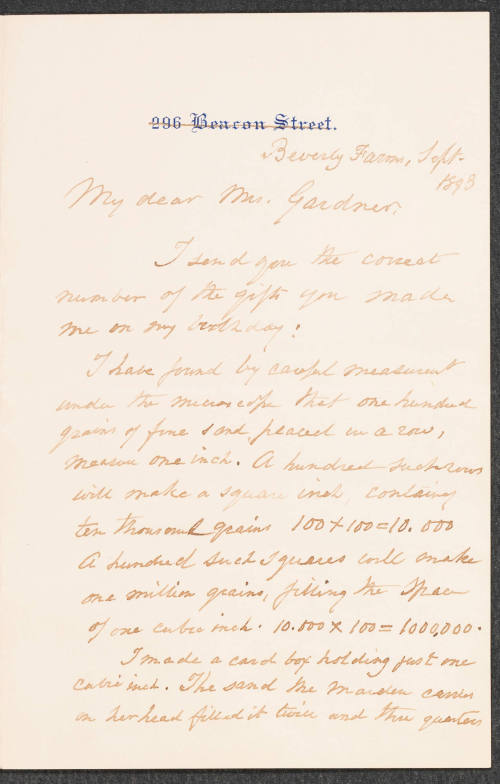 296 Beacon Street.
Beverly Farms, Sept.
1893
My dear Mrs. Gardner,
I send you the correct
number of the gifts you made
me on my birthday:
I have found by careful measurement
under the microscope that one hundred
grains of fine sand, placed in a row,
measure one inch. A hundred such rows
will make a square inch, containing
ten thousand grains 100 × 100 = 10.000
A hundred such squares will make
one million grains, filling the space
of one cubic inch. 10.000 × 100 = 1000,000.
I made a card box holding just one
cubic inch. The sand the maiden carries
on her head filled it twice and three quarters